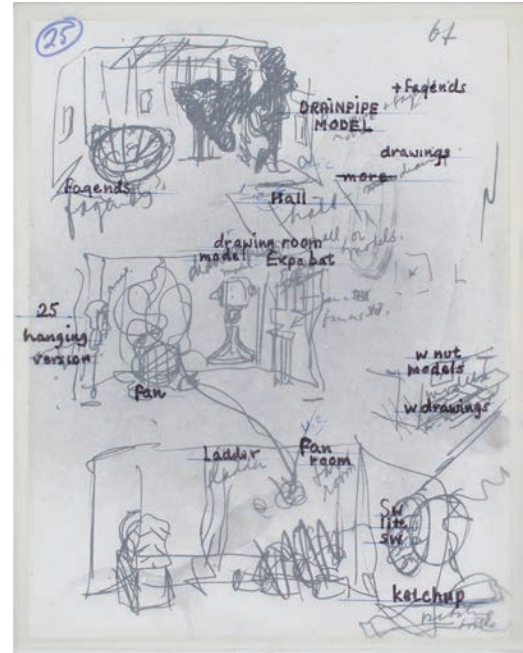 25
67
+ Fagends
DRAINPIPE
MODEL
drawings
more
Fagends
fagends
Hall
hall
drawing room
model Expa bat
25
hanging
version
Fan
w nut
models
w drawings
Ladder
Fan
room
Sw
lite
sw
ketchup